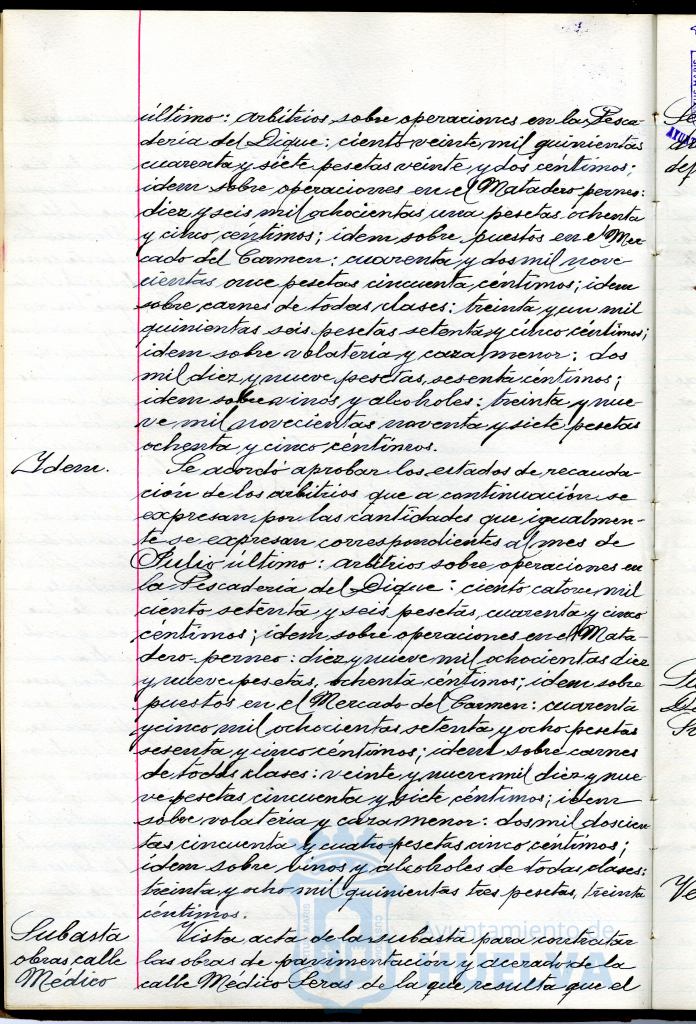 último: arbitrios sobre operaciones en la Pesca-
dería del Dique: ciento veinte mil quinientas
cuarenta y siete pesetas veinte y dos céntimos;
idem sobre operaciones en el Matadero perneo:
diez y seis mil ochocientas una pesetas ochenta
y cinco céntimos; idem sobre puestos en el Mer-
cado del Carmen: cuarenta y dos mil nove
cientas once pesetas cincuenta céntimos; idem
sobre carnes de todas clases: treinta y un mil
quinientas seis pesetas setenta y cinco céntimos;
idem sobre volatería y caza menor: dos
mil diez y nueve pesetas, sesenta céntimos;
idem sobre vinos y alcoholes: treinta y nue-
ve mil novecientas noventa y siete pesetas
ochenta y cinco céntimos.
Idem. Se acordó aprobar los estados de recauda-
ción de los arbitrios que a continuación se
expresan por las cantidades que igualmen-
te se expresan correspondientes al mes de
Julio último: arbitrios sobre operaciones en
la Pescadería del Dique: ciento catorce mil
ciento setenta y seis pesetas, cuarenta y cinco
céntimos; idem sobre operaciones en el Mata-
dero perneo: diez y nueve mil ochocientas diez
y nueve pesetas, ochenta céntimos; idem sobre
puestos en el Mercado del Carmen: cuarenta
y cinco mil ochocientas setenta y ocho pesetas
sesenta y cinco céntimos; idem sobre carnes
de todas clases: veinte y nueve mil diez y nue-
ve pesetas cincuenta y siete céntimos; idem
sobre volatería y caza menor: dos mil doscien-
tas cincuenta y cuatro pesetas cinco céntimos;
idem sobre vinos y alcoholes de todas clases:
treinta y ocho mil quinientas tres pesetas, treinta
céntimos.
Subasta Vista acta de la subasta para contratar
obras calle las obras de pavimentación y acerado de la
Médico calle Médico Seras de la que resulta que el
Ayuntamiento de
HUELVA